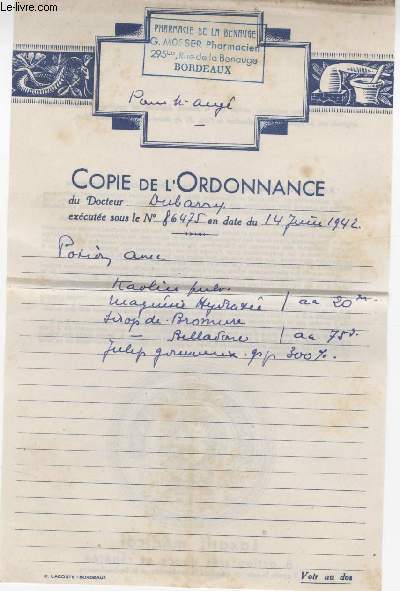 www.le-livre.com
PHARMACIE DE LA BENAUGE
G. MOSSER, Pharmacien
295bis, Rue de la Benauge
BORDEAUX
Pour
COPIE DE L'ORDONNANCE
du Docteur Dubarry
exécutée sous le No 86475 en date du 14 Juin 1942.
Potion avec
Kaolin pulv.
Magnésie Hydratée / aa 20
Sirop de Bromure
— Belladone / aa 75
Julep gommeux qsp 300
E. LACOSTE - BORDEAUX
Voir au dos